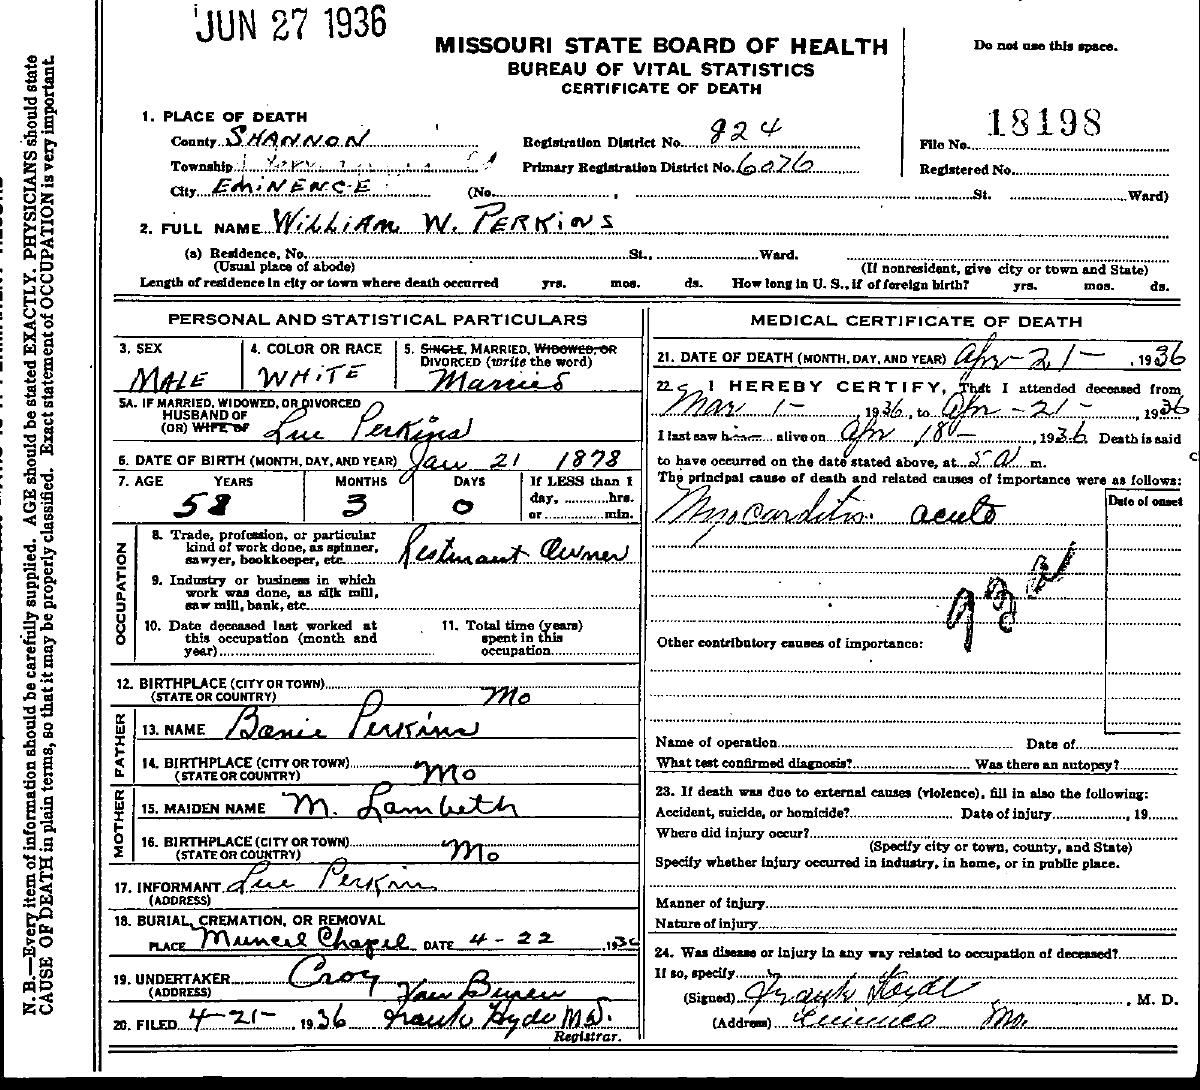 JUN 27 1936
MISSOURI STATE BOARD OF HEALTH
BUREAU OF VITAL STATISTICS
CERTIFICATE OF DEATH
Do not use this space.
1. PLACE OF DEATH
County SHANNON
Registration District No. 824
File No. 18198
Township
Primary Registration District No. 6076
Registered No.
City EMINENCE (No. , St. Ward)
2. FULL NAME WILLIAM W. PERKINS
(a) Residence, No. St., Ward.
(Usual place of abode) (If nonresident, give city or town and State)
Length of residence in city or town where death occurred yrs. mos. ds. How long in U. S., if of foreign birth? yrs. mos. ds.
PERSONAL AND STATISTICAL PARTICULARS
3. SEX MALE
4. COLOR OR RACE WHITE
5. SINGLE, MARRIED, WIDOWED, OR
DIVORCED (write the word)
Married
5A. IF MARRIED, WIDOWED, OR DIVORCED
HUSBAND OF
(OR) WIFE OF Lue Perkins
6. DATE OF BIRTH (MONTH, DAY, AND YEAR) Jan 21 1878
7. AGE YEARS MONTHS DAYS If LESS than 1
day, hrs.
or min.
58 3 0
OCCUPATION
8. Trade, profession, or particular
kind of work done, as spinner,
sawyer, bookkeeper, etc. Resturant Owner
9. Industry or business in which
work was done, as silk mill,
saw mill, bank, etc.
10. Date deceased last worked at
this occupation (month and
year)
11. Total time (years)
spent in this
occupation
12. BIRTHPLACE (CITY OR TOWN)
(STATE OR COUNTRY) Mo
FATHER
13. NAME Banie Perkins
14. BIRTHPLACE (CITY OR TOWN)
(STATE OR COUNTRY) Mo
MOTHER
15. MAIDEN NAME M. Lambeth
16. BIRTHPLACE (CITY OR TOWN)
(STATE OR COUNTRY) Mo
17. INFORMANT Lue Perkins
(ADDRESS)
18. BURIAL, CREMATION, OR REMOVAL
PLACE Muncel Chapel DATE 4-22 , 1936
19. UNDERTAKER Croy
(ADDRESS) Van Buren
20. FILED 4-21- , 1936 Frank Hyde M.D.
Registrar.
MEDICAL CERTIFICATE OF DEATH
21. DATE OF DEATH (MONTH, DAY, AND YEAR) Apr-21- , 1936
22. I HEREBY CERTIFY, That I attended deceased from
Mar 1- , 1936, to Apr-21- , 1936
I last saw him alive on Apr 18- , 1936 Death is said
to have occurred on the date stated above, at 5 a m.
The principal cause of death and related causes of importance were as follows:
Date of onset
Myocarditis. acute
93a
Other contributory causes of importance:
Name of operation Date of
What test confirmed diagnosis? Was there an autopsy?
23. If death was due to external causes (violence), fill in also the following:
Accident, suicide, or homicide? Date of injury , 19
Where did injury occur?
(Specify city or town, county, and State)
Specify whether injury occurred in industry, in home, or in public place.
Manner of injury
Nature of injury
24. Was disease or injury in any way related to occupation of deceased?
If so, specify
(Signed) Frank Hyde , M. D.
(Address) Eminence Mo.
N. B.—Every item of information should be carefully supplied. AGE should be stated EXACTLY. PHYSICIANS should state
CAUSE OF DEATH in plain terms, so that it may be properly classified. Exact statement of OCCUPATION is very important.